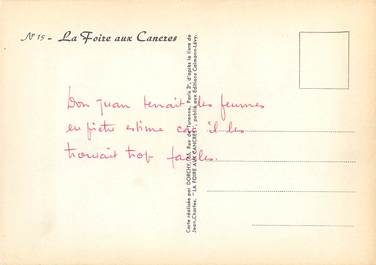 N° 15 - La Foire aux Cancres
Don Juan tenait les femmes
en piètre estime car il les
trouvait trop faciles.
Carte réalisée par DORCHY, 16, Rue de Turenne, Paris 3°, d'après le livre de
Jean-Charles, "LA FOIRE AUX CANCRES", publié aux Éditions Calmann-Lévy.